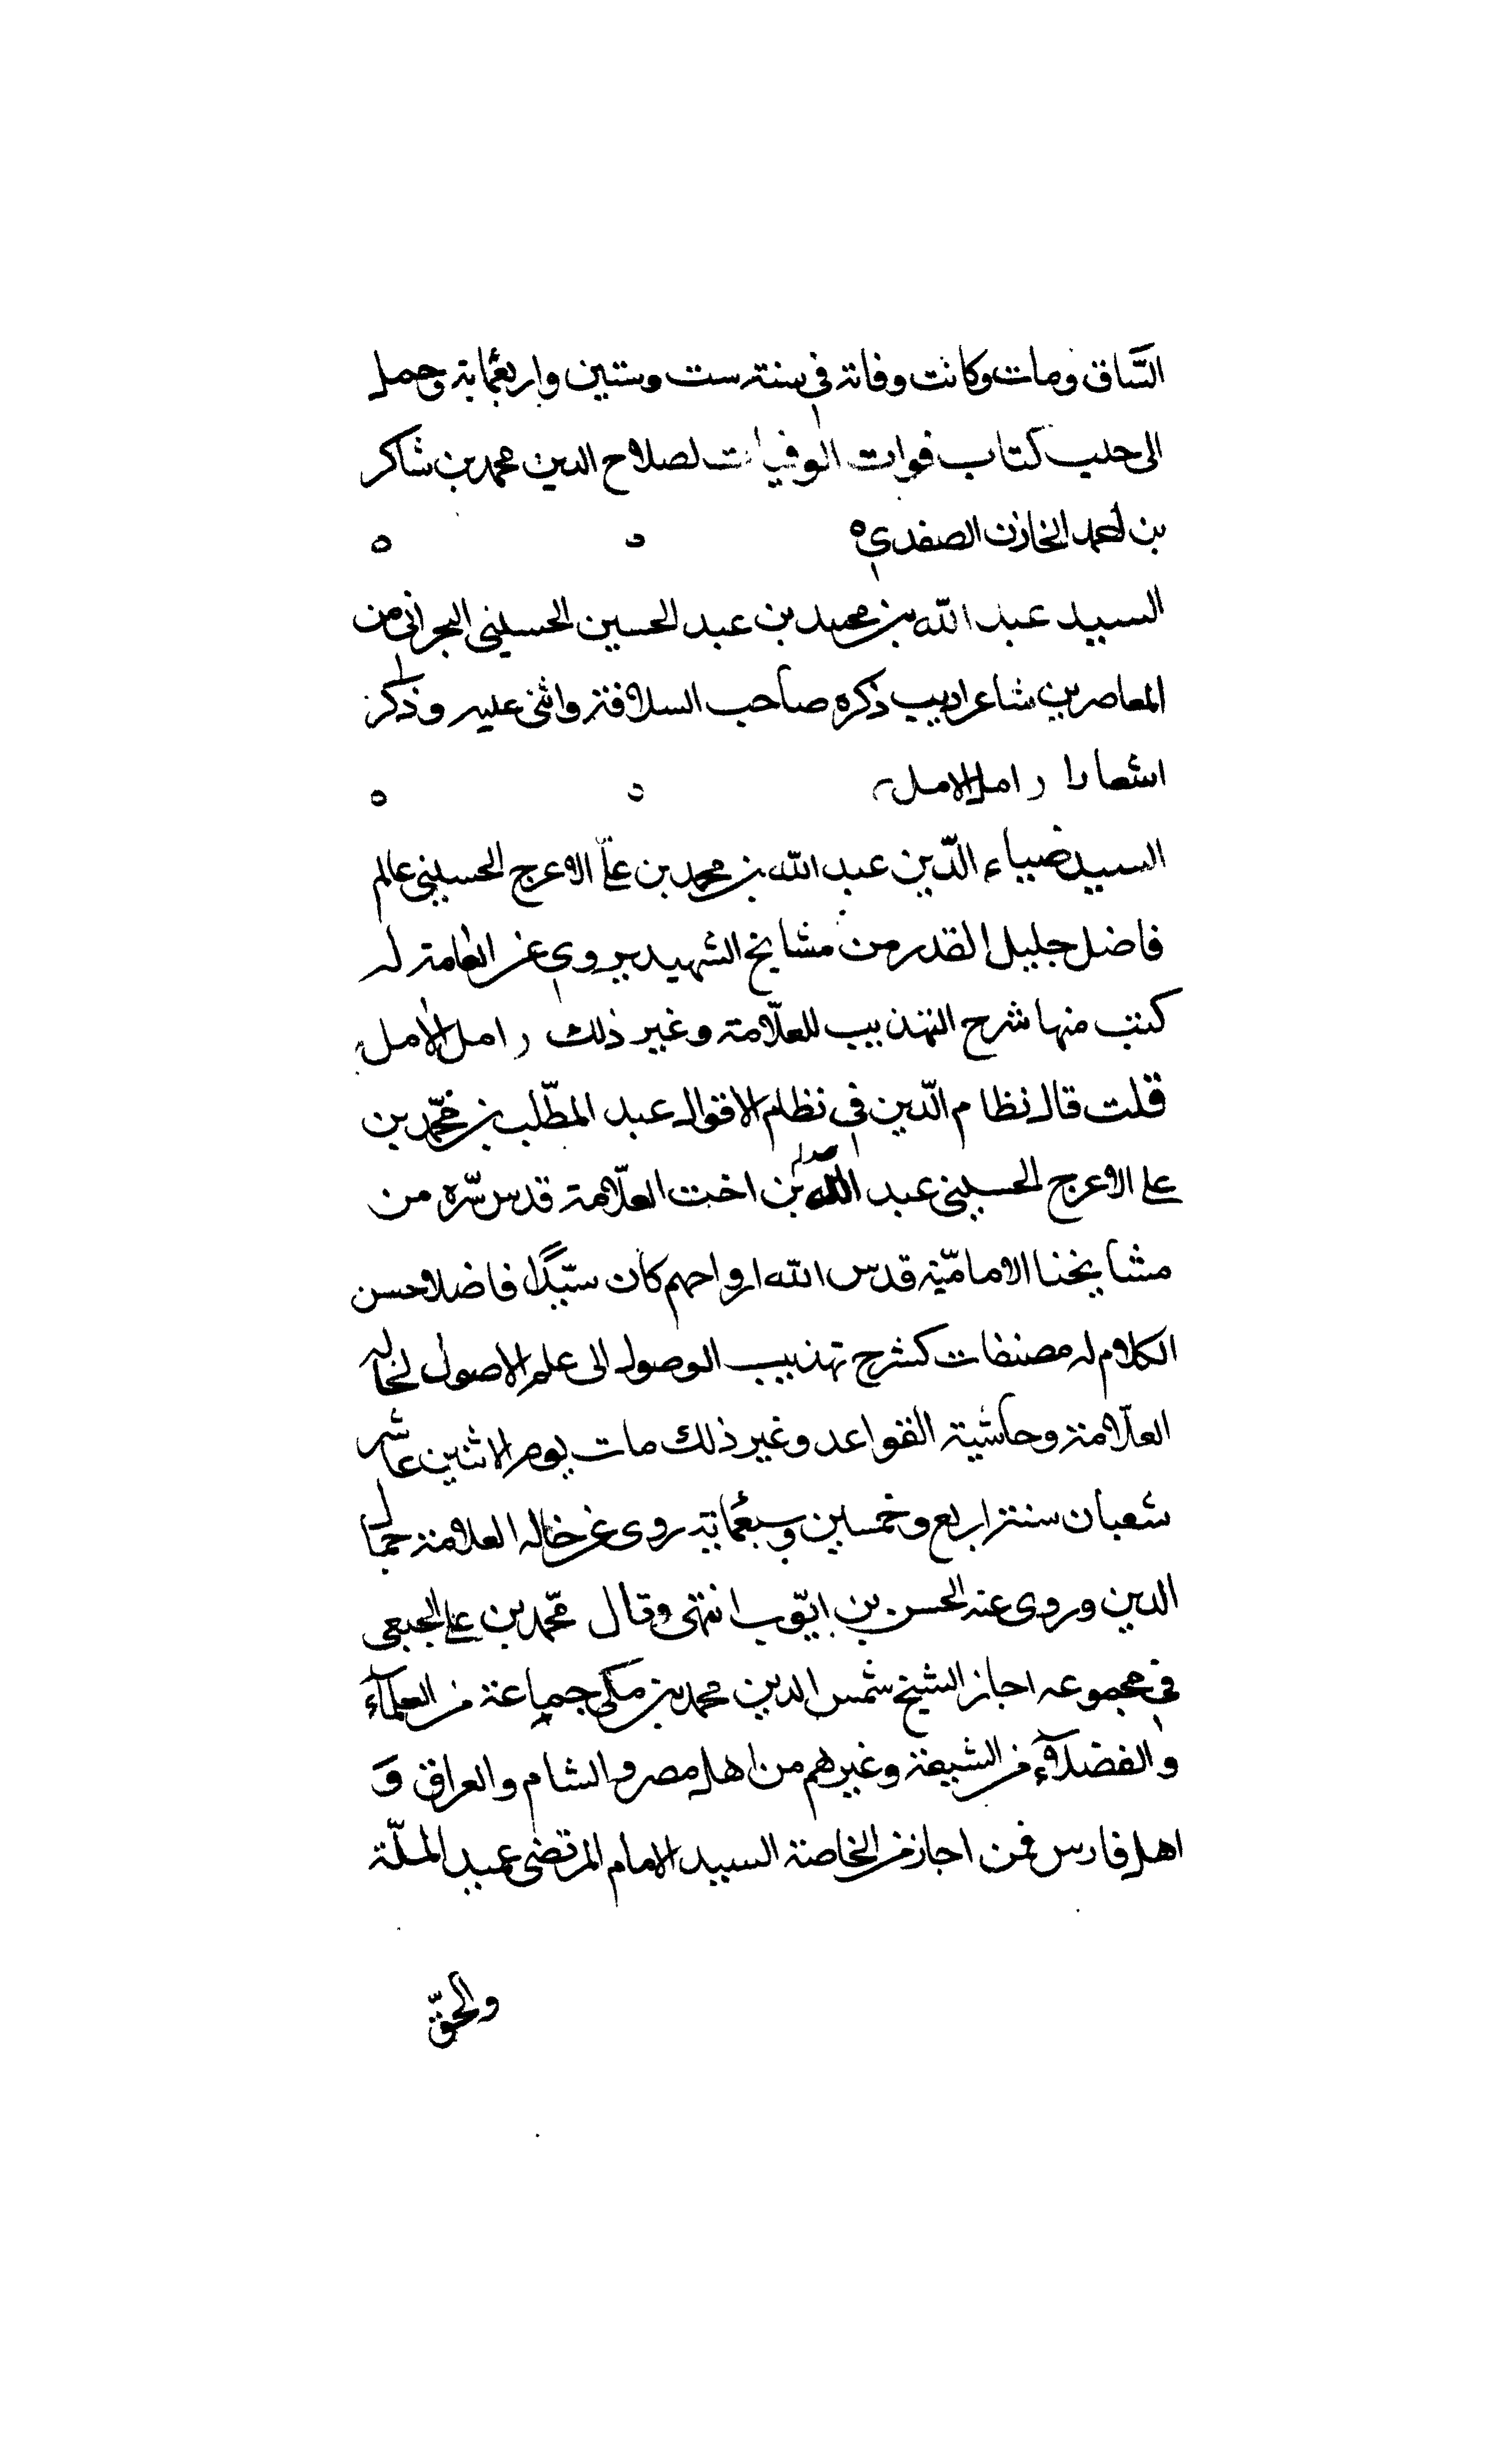 السّاق ومات وكانت وفاته في سنته ست وستين واربعمایة وحمل
الى حلب كتاب فوات الوفيات لصلاح الدين محمد بن شاكر
بن احمد الخازن الصفدي ه
السيد عبد الله بن محمد بن عبد الحسين الحسيني البحراني من
المعاصرين شاعر اديب ذكره صاحب السلافة واثنى عليه وذكر
اشعارا امل الامل
السيد ضياء الدّين عبد الله بن محمد بن علي الاعرج الحسيني عالم
فاضل جليل القدر من مشايخ الشهيد يروي عن العامة له
كتب منها شرح التهذيب للعلّامة وغير ذلك امل الامل
قلت قال نظام الدّين في نظام الاقوال عبد المطّلب بن محمّد بن
علي الاعرج الحسيني عبد الله بن اخت العلّامة قدس سّره من
مشايخنا الاماميّة قدس الله ارواحهم كان سيّدا فاضلا حسن
الكلام له مصنفات كشرح تهذيب الوصول الى علم الاصول لخاله
العلّامة وحاشية القواعد وغير ذلك مات يوم الاثنين عاشر
شعبان سنة اربع وخمسين وسبعمائة روى عن خاله العلامة جمال
الدين وروى عنه الحسن بن ايّوب انتهى وقال محّمد بن علي الجبعي
في مجموعه اجاز الشيخ شمس الدين محمد بن مكي جماعة من العلمآء
والفضلآء من الشيعة وغيرهم من اهل مصر والشام والعراق و
اهل فارس فمن اجاز من الخاصة السيد الامام المرتضى عميد الملّة
والحقّ